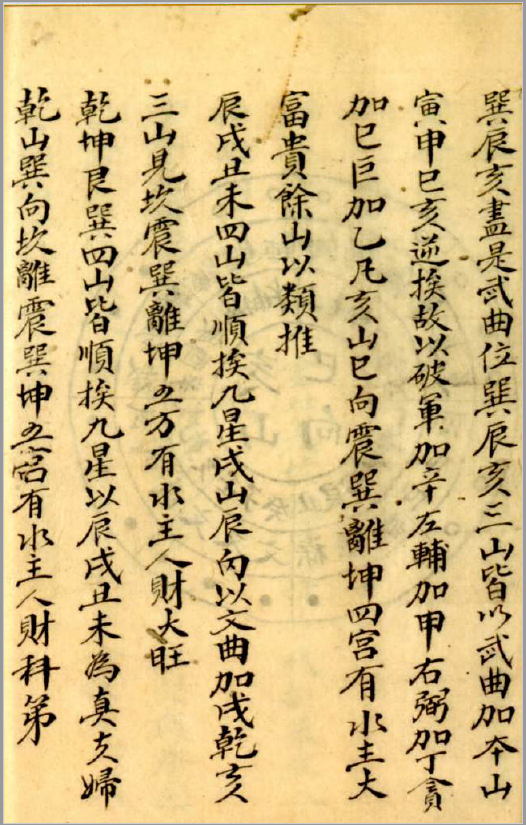 巽辰亥盡是武曲位巽辰亥三山皆以武曲加本山
寅申巳亥逆挨故以破軍加辛左輔加甲右弼加丁貪
加巳巨加乙凡亥山巳向震巽離坤四宮有水主大
富貴餘山以類推
辰戌丑未四山皆順挨九星戌山辰向以文曲加戌乾亥
三山見坎震巽離坤五方有水主人財大旺
乾坤艮巽四山皆順挨九星以辰戌丑未為真夫婦
乾山巽向坎離震巽坤五宮有水主人財科第